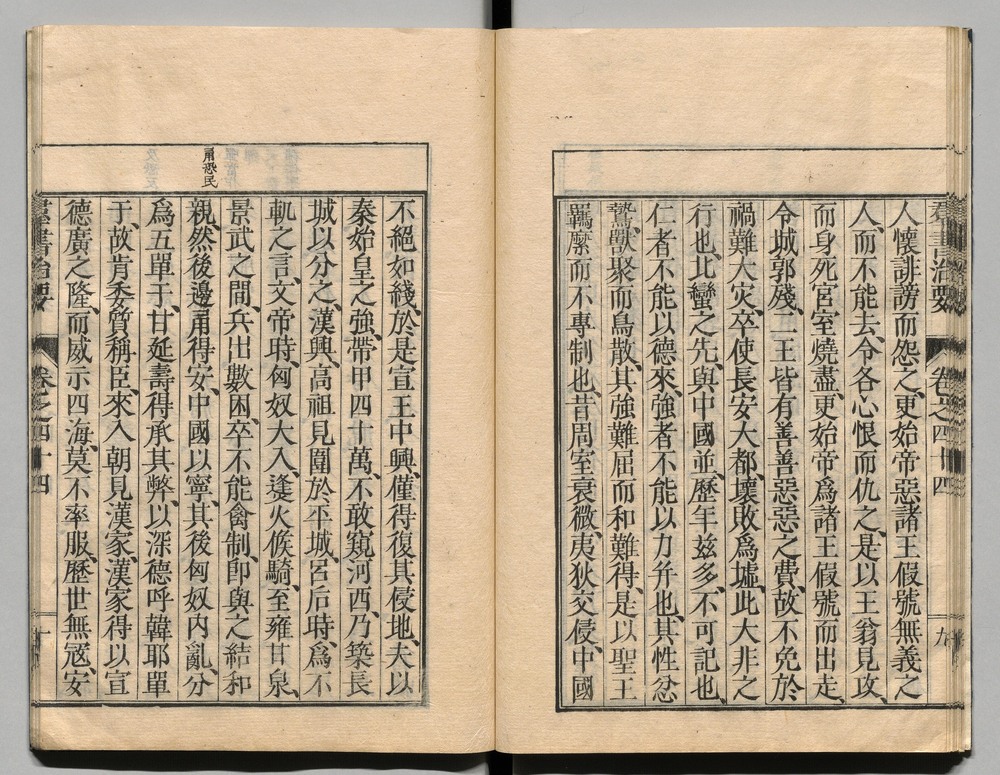 羣書治要 卷之四十四 九
人懷誹謗而怨之、更始帝惡諸王假號無義之
人、而不能去、令各心恨而仇之、是以王翁見攻、
而身死宮室燒盡、更始帝爲諸王假號而出走、
令城郭殘、二王皆有善善惡惡之費、故不免於
禍難大灾、卒使長安大都、壞敗爲墟、此大非之
行也、北蠻之先、與中國並、歷年兹多、不可記也、
仁者不能以德來、強者不能以力并也、其性忿
鷙、獸聚而鳥散、其強難屈而和難得、是以聖王
羈縻而不專制也、昔周室衰微、夷狄交侵、中國
不絕如綫、於是宣王中興、僅得復其侵地、夫以
秦始皇之強、帶甲四十萬、不敢窺河西、乃築長
城以分之、漢興、高祖見圍於平城、呂后時爲不
軌之言、文帝時、匈奴大入、逢火候騎、至雍甘泉、
景武之間、兵出數困、卒不能禽制、卽與之結和
親、然後邊甬得安、中國以寧、其後匈奴内亂、分
甬恐民
爲五單于、甘延壽得承其弊、以深德呼韓耶單
于、故肯委質稱臣、來入朝見漢家、漢家得以宣
德廣之隆、而威示四海、莫不率服、歷世無寇、安
羣書治要 卷之四十四 十